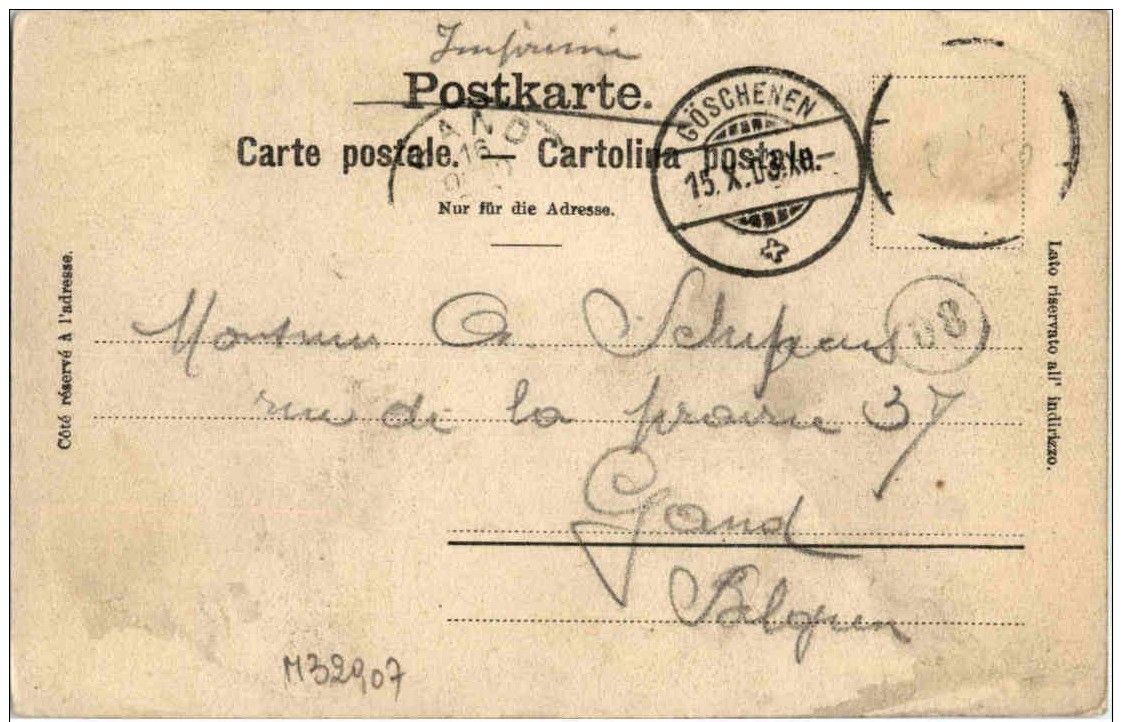 Imprimé
Postkarte.
GÖSCHENEN
GAND
16
Carte postale. — Cartolina postale.
15.X.03.XII–
Nur für die Adresse.
Côté réservé à l'adresse.
Lato riservato all' indirizzo.
Monsieur
rue de la prairie 37
Gand
Belgien
M32907